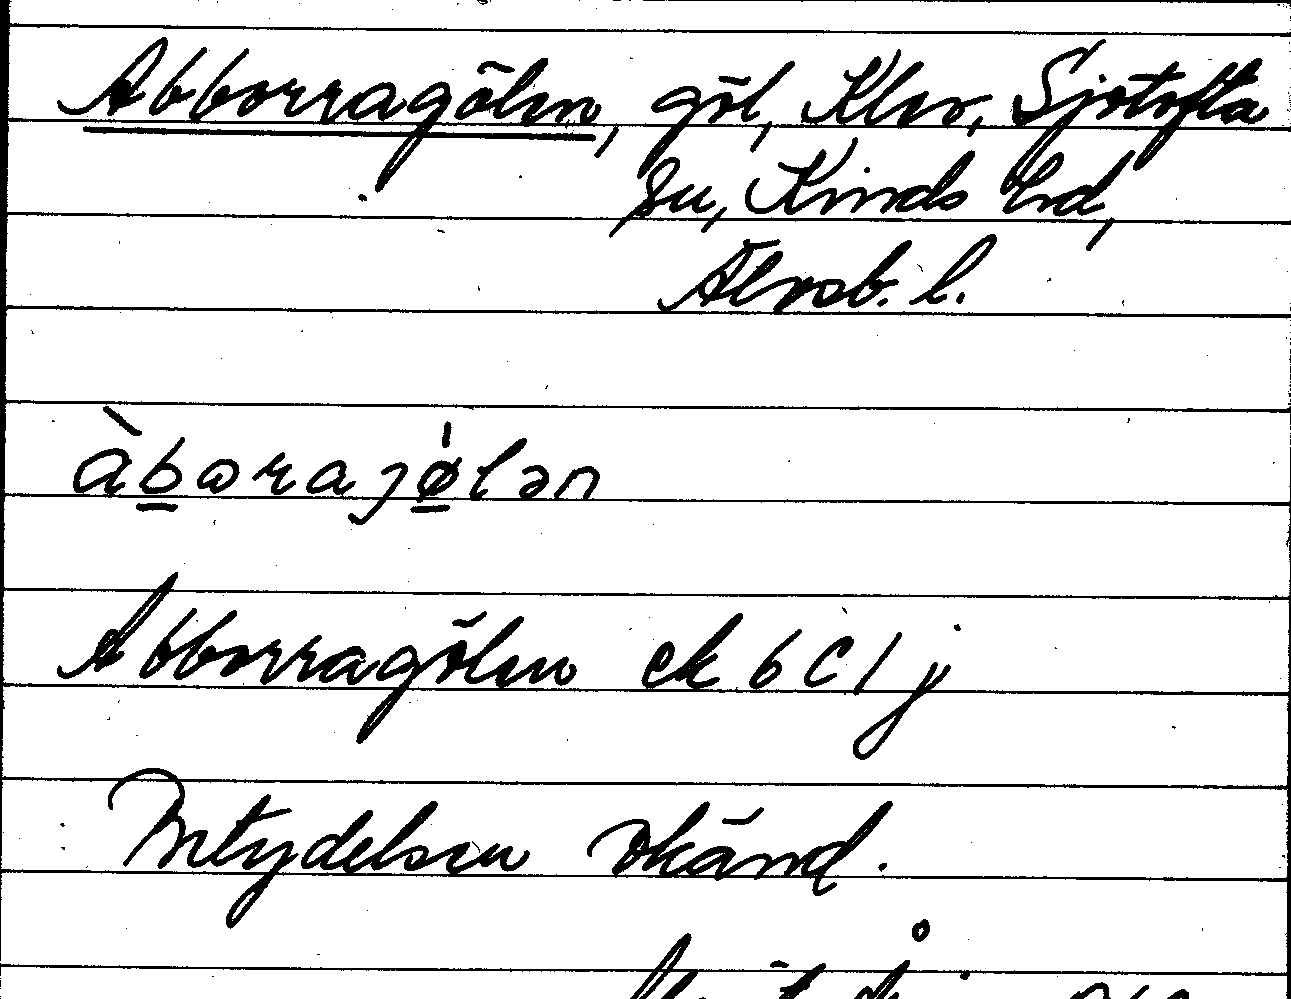 Abborragölen, göl, Klev, Sjötofta
sn, Kinds hd,
Älvsb. l.
àbɷrajø̀lən
Abborragölen ek 6 C 1 j
Betydelsen okänd.